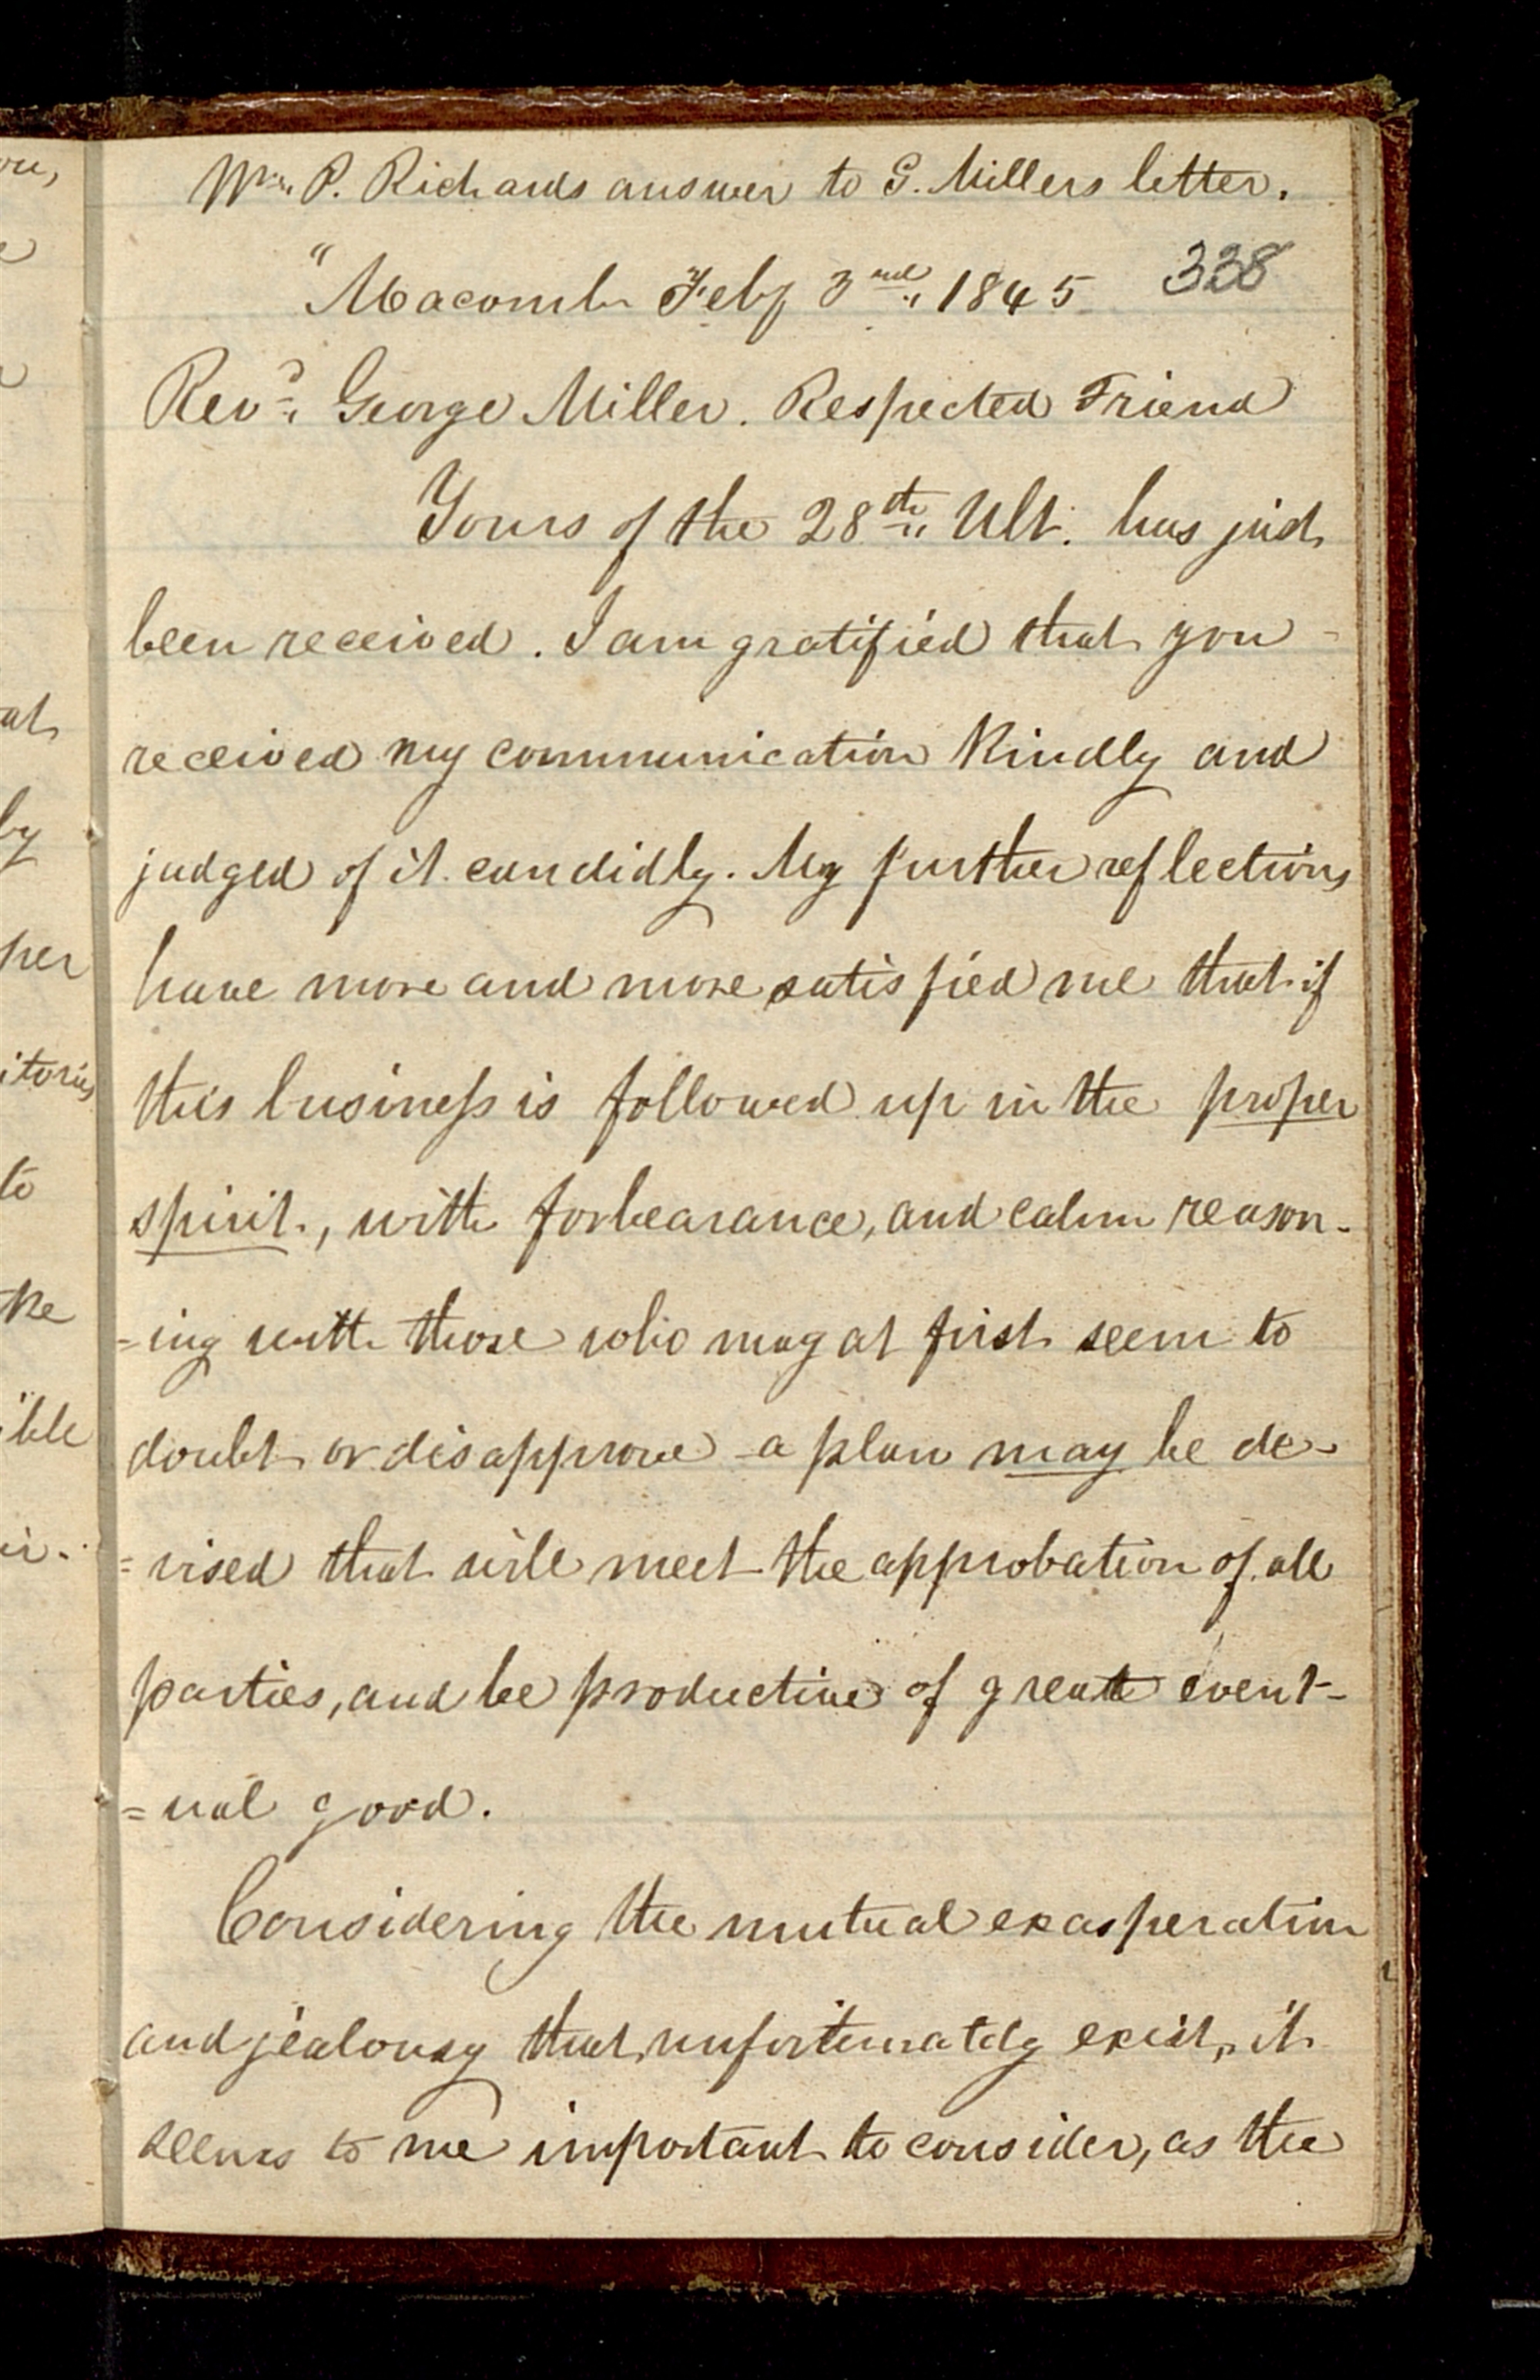 Wm. P. Richards answer to G. Millers letter.
"Macomb Feby 3rd 1845 338
Revd. George Miller. Respected Friend
Yours of the 28th Ult. has just
been received. I am gratified that you
received my communication Kindly and
judged of it candidly. My further reflections
have more and more satisfied me that if
this business is followed up in the proper
spirit, with forbearance, and calm reason-
=ing with those who may at first seem to
doubt or disapprove a plan may be de-
=vised that will meet the approbation of all
parties, and be productive of great event-
=ual good.
Considering the mutual exasperation
and jealousy that unfortunately exist, it
seems to me important to consider, as the
ou,
e
at
by
per
itories
to
ke
ible
ir.